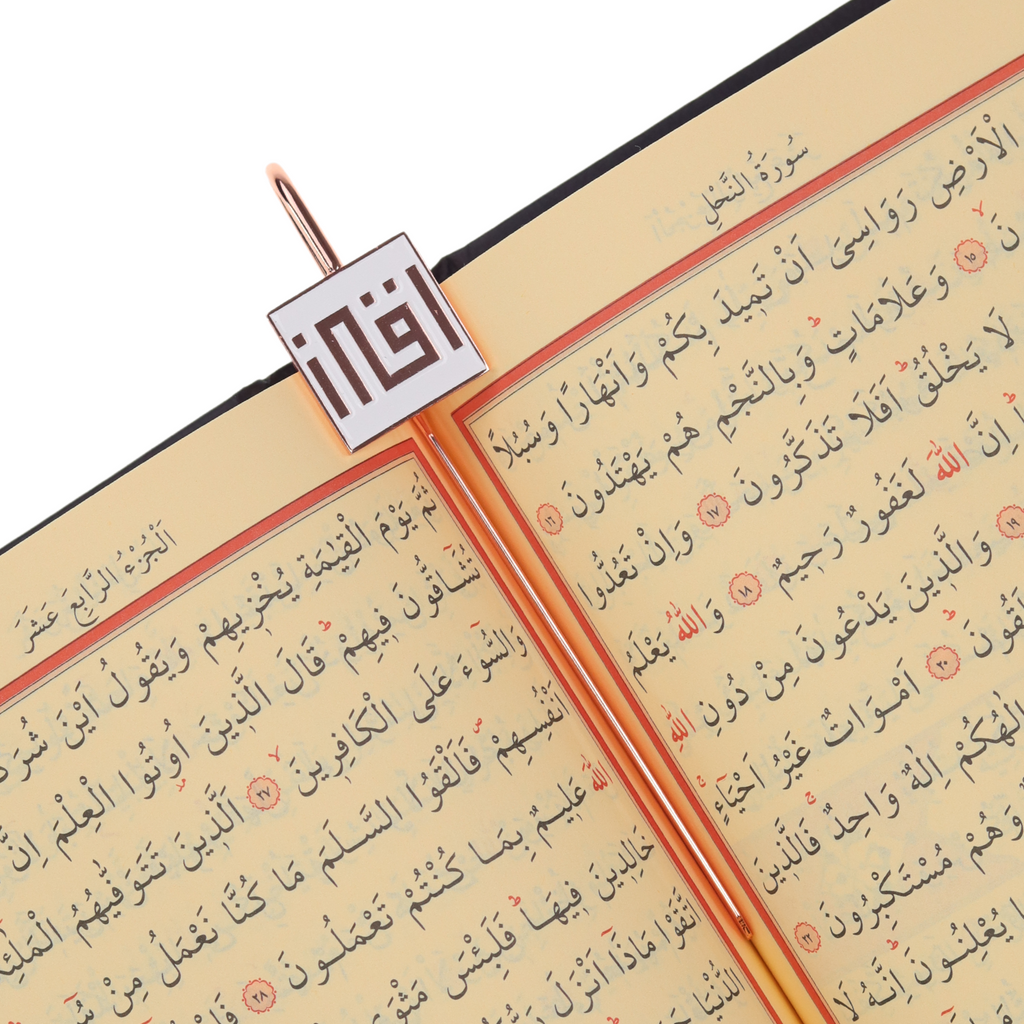 اقرأ
سُورَةُ النَّحْلِ
الْاَرْضِ رَوَاسِىَ اَنْ تَمِيدَ بِكُمْ وَاَنْهَارًا وَسُبُلاً
١٥ وَعَلَامَاتٍ وَبِالنَّجْمِ هُمْ يَهْتَدُونَ ١٦
لَا يَخْلُقُ اَفَلَا تَذَكَّرُونَ ١٧ وَاِنْ تَعُدُّوا
اِنَّ اللّٰهَ لَغَفُورٌ رَحِيمٌ ١٨ وَاللّٰهُ يَعْلَمُ
١٩ وَالَّذِينَ يَدْعُونَ مِنْ دُونِ اللّٰهِ
٢٠ اَمْوَاتٌ غَيْرُ اَحْيَاءٍ
اِلٰهٌ وَاحِدٌ فَالَّذِينَ
وَهُمْ مُسْتَكْبِرُونَ ٢٢
يُعْلِنُونَ اِنَّهُ لَا
اَلْجُزْءُ الرَّابِعَ عَشَرَ
ثُمَّ يَوْمَ الْقِيٰمَةِ يُخْزِيهِمْ وَيَقُولُ اَيْنَ
تُشَٓاقُّونَ فِيهِمْ قَالَ الَّذِينَ اُوتُوا الْعِلْمَ اِنَّ
وَالسُّٓوءَ عَلَى الْكَافِرِينَ ٢٧ اَلَّذِينَ تَتَوَفّٰيهُمُ
اَنْفُسِهِمْ فَاَلْقَوُا السَّلَمَ مَا كُنَّا نَعْمَلُ مِنْ
اللّٰهَ عَلِيمٌ بِمَا كُنْتُمْ تَعْمَلُونَ ٢٨
خَالِدِينَ فِيهَا فَلَبِئْسَ مَثْوَى
اتَّقَوْا مَاذَٓا اَنْزَلَ
الدُّنْيَا